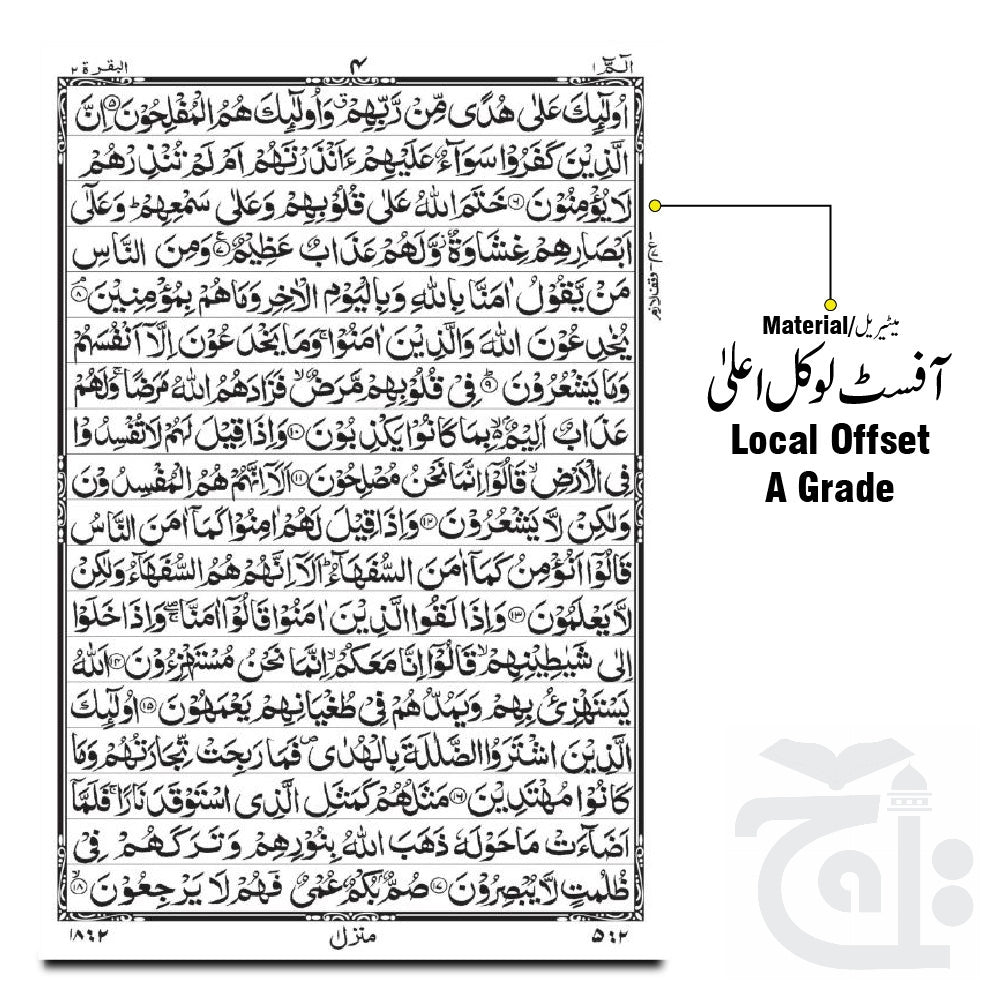 الٓمّٓ ١
۴
البقرة ٢
اُولٰٓئِكَ عَلٰى هُدًى مِّنْ رَّبِّهِمْ ۗ وَاُولٰٓئِكَ هُمُ الْمُفْلِحُوْنَ ۝۵ اِنَّ
الَّذِيْنَ كَفَرُوْا سَوَآءٌ عَلَيْهِمْ ءَاَنْذَرْتَهُمْ اَمْ لَمْ تُنْذِرْهُمْ
لَا يُؤْمِنُوْنَ ۝۶ خَتَمَ اللّٰهُ عَلٰى قُلُوْبِهِمْ وَعَلٰى سَمْعِهِمْ ؕ وَعَلٰٓى
اَبْصَارِهِمْ غِشَاوَةٌ ؗ وَّلَهُمْ عَذَابٌ عَظِيْمٌ ۝۷ وَمِنَ النَّاسِ
مَنْ يَّقُوْلُ اٰمَنَّا بِاللّٰهِ وَبِالْيَوْمِ الْاٰخِرِ وَمَا هُمْ بِمُؤْمِنِيْنَ ۝۸ۘ
يُخٰدِعُوْنَ اللّٰهَ وَالَّذِيْنَ اٰمَنُوْا ۚ وَمَا يَخْدَعُوْنَ اِلَّآ اَنْفُسَهُمْ
وَمَا يَشْعُرُوْنَ ۝۹ فِيْ قُلُوْبِهِمْ مَّرَضٌ ۙ فَزَادَهُمُ اللّٰهُ مَرَضًا ۚ وَلَهُمْ
عَذَابٌ اَلِيْمٌۢ ۙ بِمَا كَانُوْا يَكْذِبُوْنَ ۝۱۰ وَاِذَا قِيْلَ لَهُمْ لَا تُفْسِدُوْا
فِي الْاَرْضِ ۙ قَالُوْٓا اِنَّمَا نَحْنُ مُصْلِحُوْنَ ۝۱۱ اَلَآ اِنَّهُمْ هُمُ الْمُفْسِدُوْنَ
وَلٰكِنْ لَّا يَشْعُرُوْنَ ۝۱۲ وَاِذَا قِيْلَ لَهُمْ اٰمِنُوْا كَمَآ اٰمَنَ النَّاسُ
قَالُوْٓا اَنُؤْمِنُ كَمَآ اٰمَنَ السُّفَهَآءُ ؕ اَلَآ اِنَّهُمْ هُمُ السُّفَهَآءُ وَلٰكِنْ
لَّا يَعْلَمُوْنَ ۝۱۳ وَاِذَا لَقُوا الَّذِيْنَ اٰمَنُوْا قَالُوْٓا اٰمَنَّا ۚۖ وَاِذَا خَلَوْا
اِلٰى شَيٰطِيْنِهِمْ ۙ قَالُوْٓا اِنَّا مَعَكُمْ ۙ اِنَّمَا نَحْنُ مُسْتَهْزِءُوْنَ ۝۱۴ اَللّٰهُ
يَسْتَهْزِئُ بِهِمْ وَيَمُدُّهُمْ فِيْ طُغْيَانِهِمْ يَعْمَهُوْنَ ۝۱۵ اُولٰٓئِكَ
الَّذِيْنَ اشْتَرَوُا الضَّلٰلَةَ بِالْهُدٰى ۪ فَمَا رَبِحَتْ تِّجَارَتُهُمْ وَمَا
كَانُوْا مُهْتَدِيْنَ ۝۱۶ مَثَلُهُمْ كَمَثَلِ الَّذِى اسْتَوْقَدَ نَارًا ۚ فَلَمَّآ
اَضَآءَتْ مَا حَوْلَهٗ ذَهَبَ اللّٰهُ بِنُوْرِهِمْ وَتَرَكَهُمْ فِيْ
ظُلُمٰتٍ لَّا يُبْصِرُوْنَ ۝۱۷ صُمٌّۢ بُكْمٌ عُمْيٌ فَهُمْ لَا يَرْجِعُوْنَ ۝۱۸ۙ
منزل ١
Material/میٹیریل
آفسٹ لوکل اعلیٰ
Local Offset
A Grade